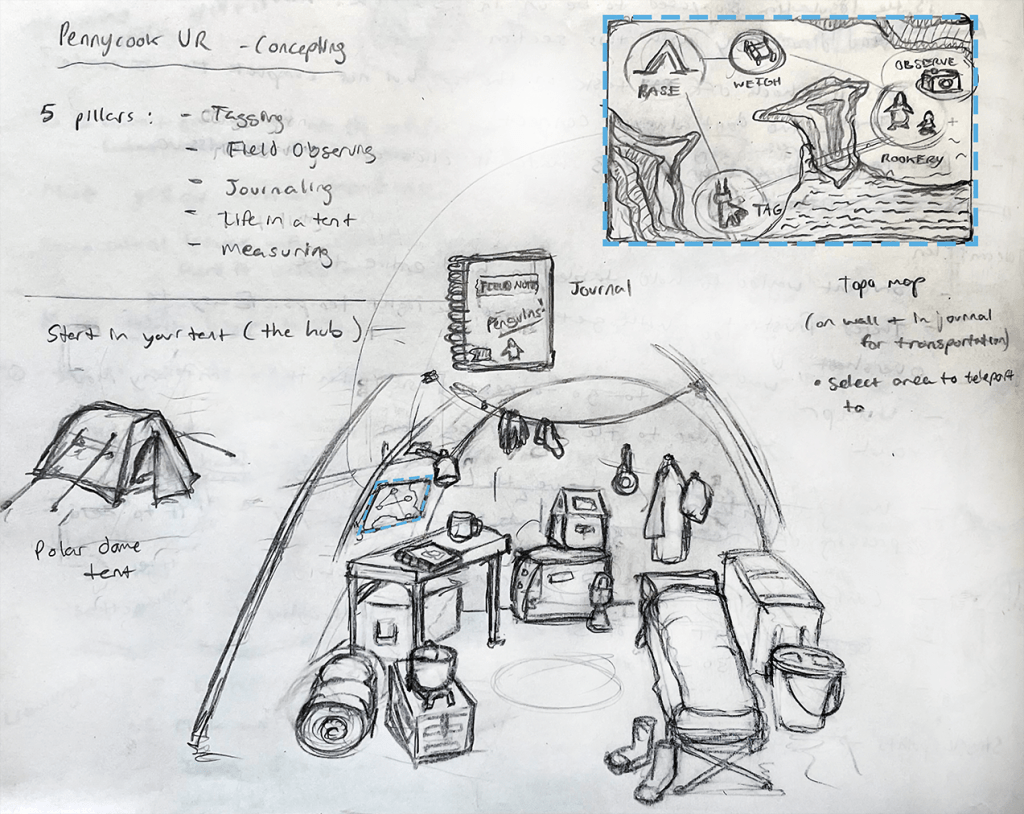 Pennycook VR - Concepting
5 pillars : - Tagging
- Field Observing
- Journaling
- Life in a tent
- Measuring
BASE
WEIGH
OBSERVE
ROOKERY
TAG
FIELD NOTES
Penguins
Journal
Topo map
(on wall + in journal
for transportation)
• Select area to teleport
to
Start in your tent (the hub)
Polar dome
tent